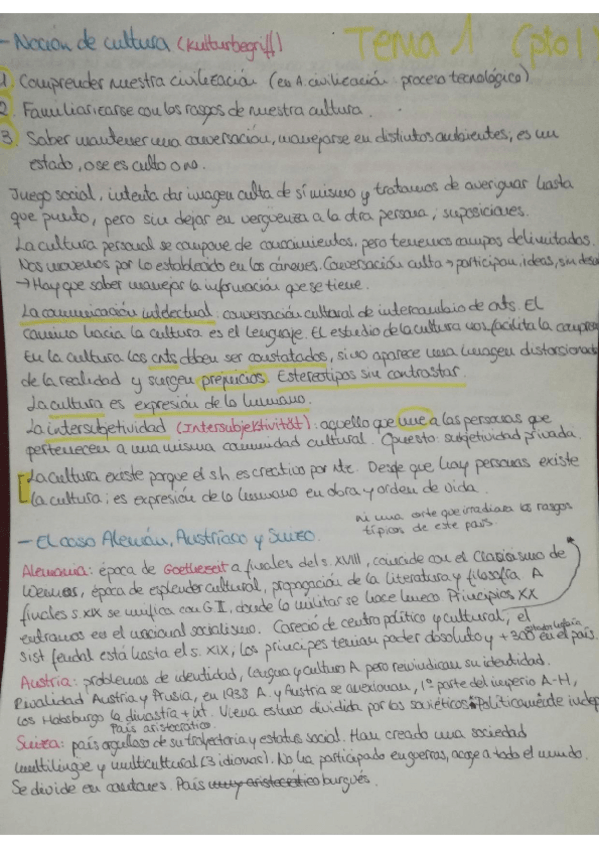 - Noción de cultura (Kulturbegriff) Tema 1 (pto 1)
1. Comprender nuestra civilización (en A. civilización: proceso tecnológico)
2. Familiarizarse con los rasgos de nuestra cultura.
3. Saber mantener una conversación, manejarse en distintos ambientes, es un
estado, o se es culto o no.
Juego social, intenta dar imagen culta de sí mismo y tratamos de averiguar hasta
que punto, pero sin dejar en vergüenza a la otra persona, suposiciones.
La cultura personal se compone de conocimientos, pero tenemos campos delimitados.
Nos movemos por lo establecido en los cánones. Conversación culta → participan, ideas, sin
→ Hay que saber manejar la información que se tiene.
La comunicación intelectual: conversación cultural de intercambio de cnts. El
camino hacia la cultura es el lenguaje. El estudio de la cultura nos facilita la
En la cultura los cnts deben ser constatados, sino aparece una imagen distorsionada
de la realidad y surgen prejuicios. Estereotipos sin contrastar.
La cultura es expresión de lo humano.
La intersubjetividad (Intersubjektivität): aquello que une a las personas que
pertenecen a una misma comunidad cultural. Opuesto: subjetividad privada.
La cultura existe porque el s.h es creativo por ntz. Desde que hay personas existe
la cultura; es expresión de lo humano en obra y orden de vida.
ni una corte que irradiara los rasgos
típicos de este país.
- El caso Alemán, Austriaco y Suizo.
Alemania: época de Goethezeit a finales del s. XVIII, coincide con el Clasicismo de
Weimar, época de esplendor cultural, propagación de la literatura y filosofía. A
finales s. XIX se unifica con G II, donde lo militar se hace hueco. Principios XX
entramos en el nacional socialismo. Careció de centro político y cultural, el
sist feudal está hasta el s. XIX, los príncipes tenían poder absoluto y +300 en el país.
Austria: problemas de identidad, lengua y cultura A pero reivindican su identidad.
Rivalidad Austria y Prusia, en 1933 A. y Austria se anexionan, 1ª parte del imperio A-H,
los Habsburgo la dinastía + int. Viena estuvo dividida por los soviéticos. Políticamente
País aristocrático
Suiza: país orgulloso de su trayectoria y estatus social. Han creado una sociedad
multilingüe y multicultural (3 idiomas). No ha participado en guerras, acoge a todo el mundo.
Se divide en cantones. País muy aristocrático burgués.